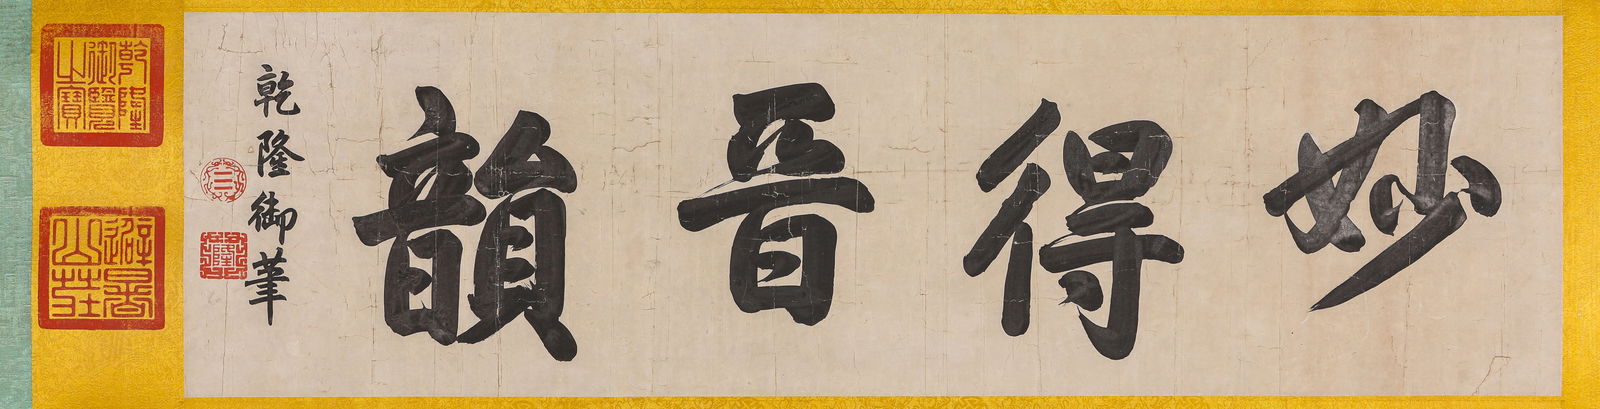 妙得晋韻
乾隆御筆
乾隆御覽之寶
避暑山莊